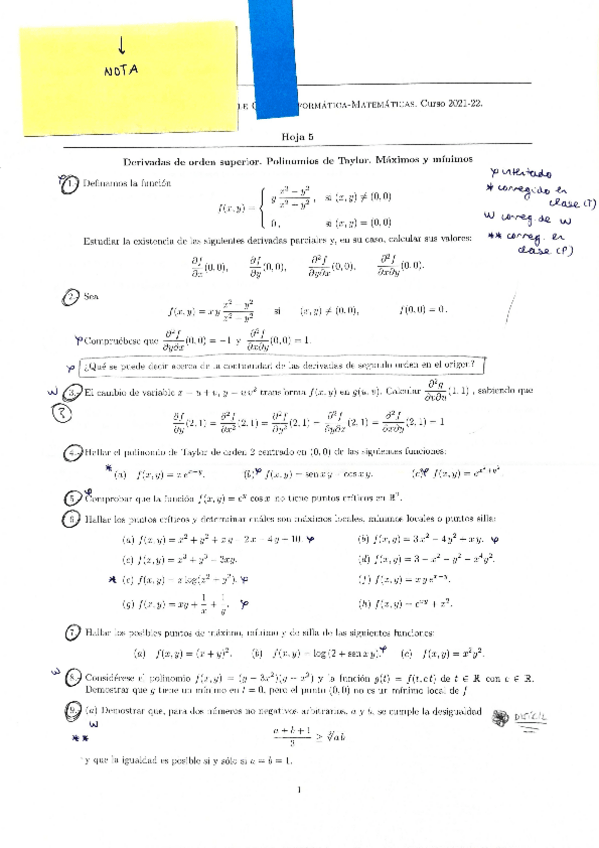 ↓
NOTA
INFORMÁTICA-MATEMÁTICAS. Curso 2021-22.
Hoja 5
Derivadas de orden superior. Polinomios de Taylor. Máximos y mínimos
intentado
* corregido en
clase (T)
w correg. de w
** correg. en
clase (P)
1. Definamos la función
f(x,y) = { y (x²−y²)/(x²−y²), si (x,y) ≠ (0,0)
0, si (x,y) = (0,0)
Estudiar la existencia de las siguientes derivadas parciales y, en su caso, calcular sus valores:
∂f/∂x (0,0), ∂f/∂y (0,0), ∂²f/∂y∂x (0,0), ∂²f/∂x∂y (0,0).
2. Sea
f(x,y) = xy (x²−y²)/(x²−y²) si (x,y) ≠ (0,0), f(0,0) = 0.
Compruébese que ∂²f/∂y∂x (0,0) = −1 y ∂²f/∂x∂y (0,0) = 1.
¿Qué se puede decir acerca de la continuidad de las derivadas de segundo orden en el origen?
w 3. El cambio de variable x = u + v, y = uv² transforma f(x,y) en g(u,v). Calcular ∂²g/∂v∂u (1,1), sabiendo que
?
∂f/∂y (2,1) = ∂²f/∂x² (2,1) = ∂²f/∂y² (2,1) = ∂²f/∂y∂x (2,1) = ∂²f/∂x∂y (2,1) = 1
4. Hallar el polinomio de Taylor de orden 2 centrado en (0,0) de las siguientes funciones:
* (a) f(x,y) = x eˣ⁻ʸ. (b) f(x,y) = sen xy − cos xy. (c) f(x,y) = eˣ²⁺ʸ²
5. Comprobar que la función f(x,y) = eʸ cos x no tiene puntos críticos en ℝ².
6. Hallar los puntos críticos y determinar cuáles son máximos locales, mínimos locales o puntos silla:
(a) f(x,y) = x² + y² + xy − 2x − 4y − 10. (b) f(x,y) = 3x² − 4y² − xy.
(c) f(x,y) = x³ + y³ − 3xy. (d) f(x,y) = 3 − x² − y² − x⁴y².
* (e) f(x,y) = x log(x² − y²). (f) f(x,y) = xy eˣ⁻ʸ.
(g) f(x,y) = xy + 1/x + 1/y. (h) f(x,y) = eˣʸ + x².
7. Hallar los posibles puntos de máximo, mínimo y de silla de las siguientes funciones:
(a) f(x,y) = (x + y)². (b) f(x,y) = log(2 + sen xy). (c) f(x,y) = x²y².
w 8. Considérese el polinomio f(x,y) = (y − 3x²)(y − x²) y la función g(t) = f(t,ct) de t ∈ ℝ con c ∈ ℝ.
Demostrar que g tiene un mínimo en t = 0, pero el punto (0,0) no es un mínimo local de f
9. (a) Demostrar que, para dos números no negativos arbitrarios, a y b, se cumple la desigualdad
w
DIFÍCIL
**
(a + b + 1)/3 ≥ ∛ab
y que la igualdad es posible si y sólo si a = b = 1.
1